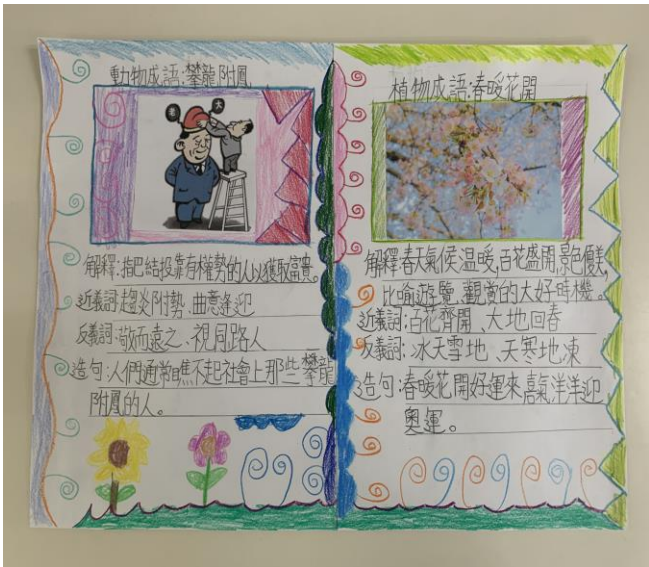 動物成語:攀龍附鳳
老 大
解釋:指巴結投靠有權勢的人以獲取富貴。
近義詞:趨炎附勢、曲意逢迎
反義詞:敬而遠之、視同路人
造句:人們通常瞧不起社會上那些攀龍
附鳳的人。
植物成語:春暖花開
解釋:春天氣候溫暖,百花盛開,景色優美,
比喻遊覽、觀賞的大好時機。
近義詞:百花齊開、大地回春
反義詞:冰天雪地、天寒地凍
造句:春暖花開好運來,喜氣洋洋迎
奧運。